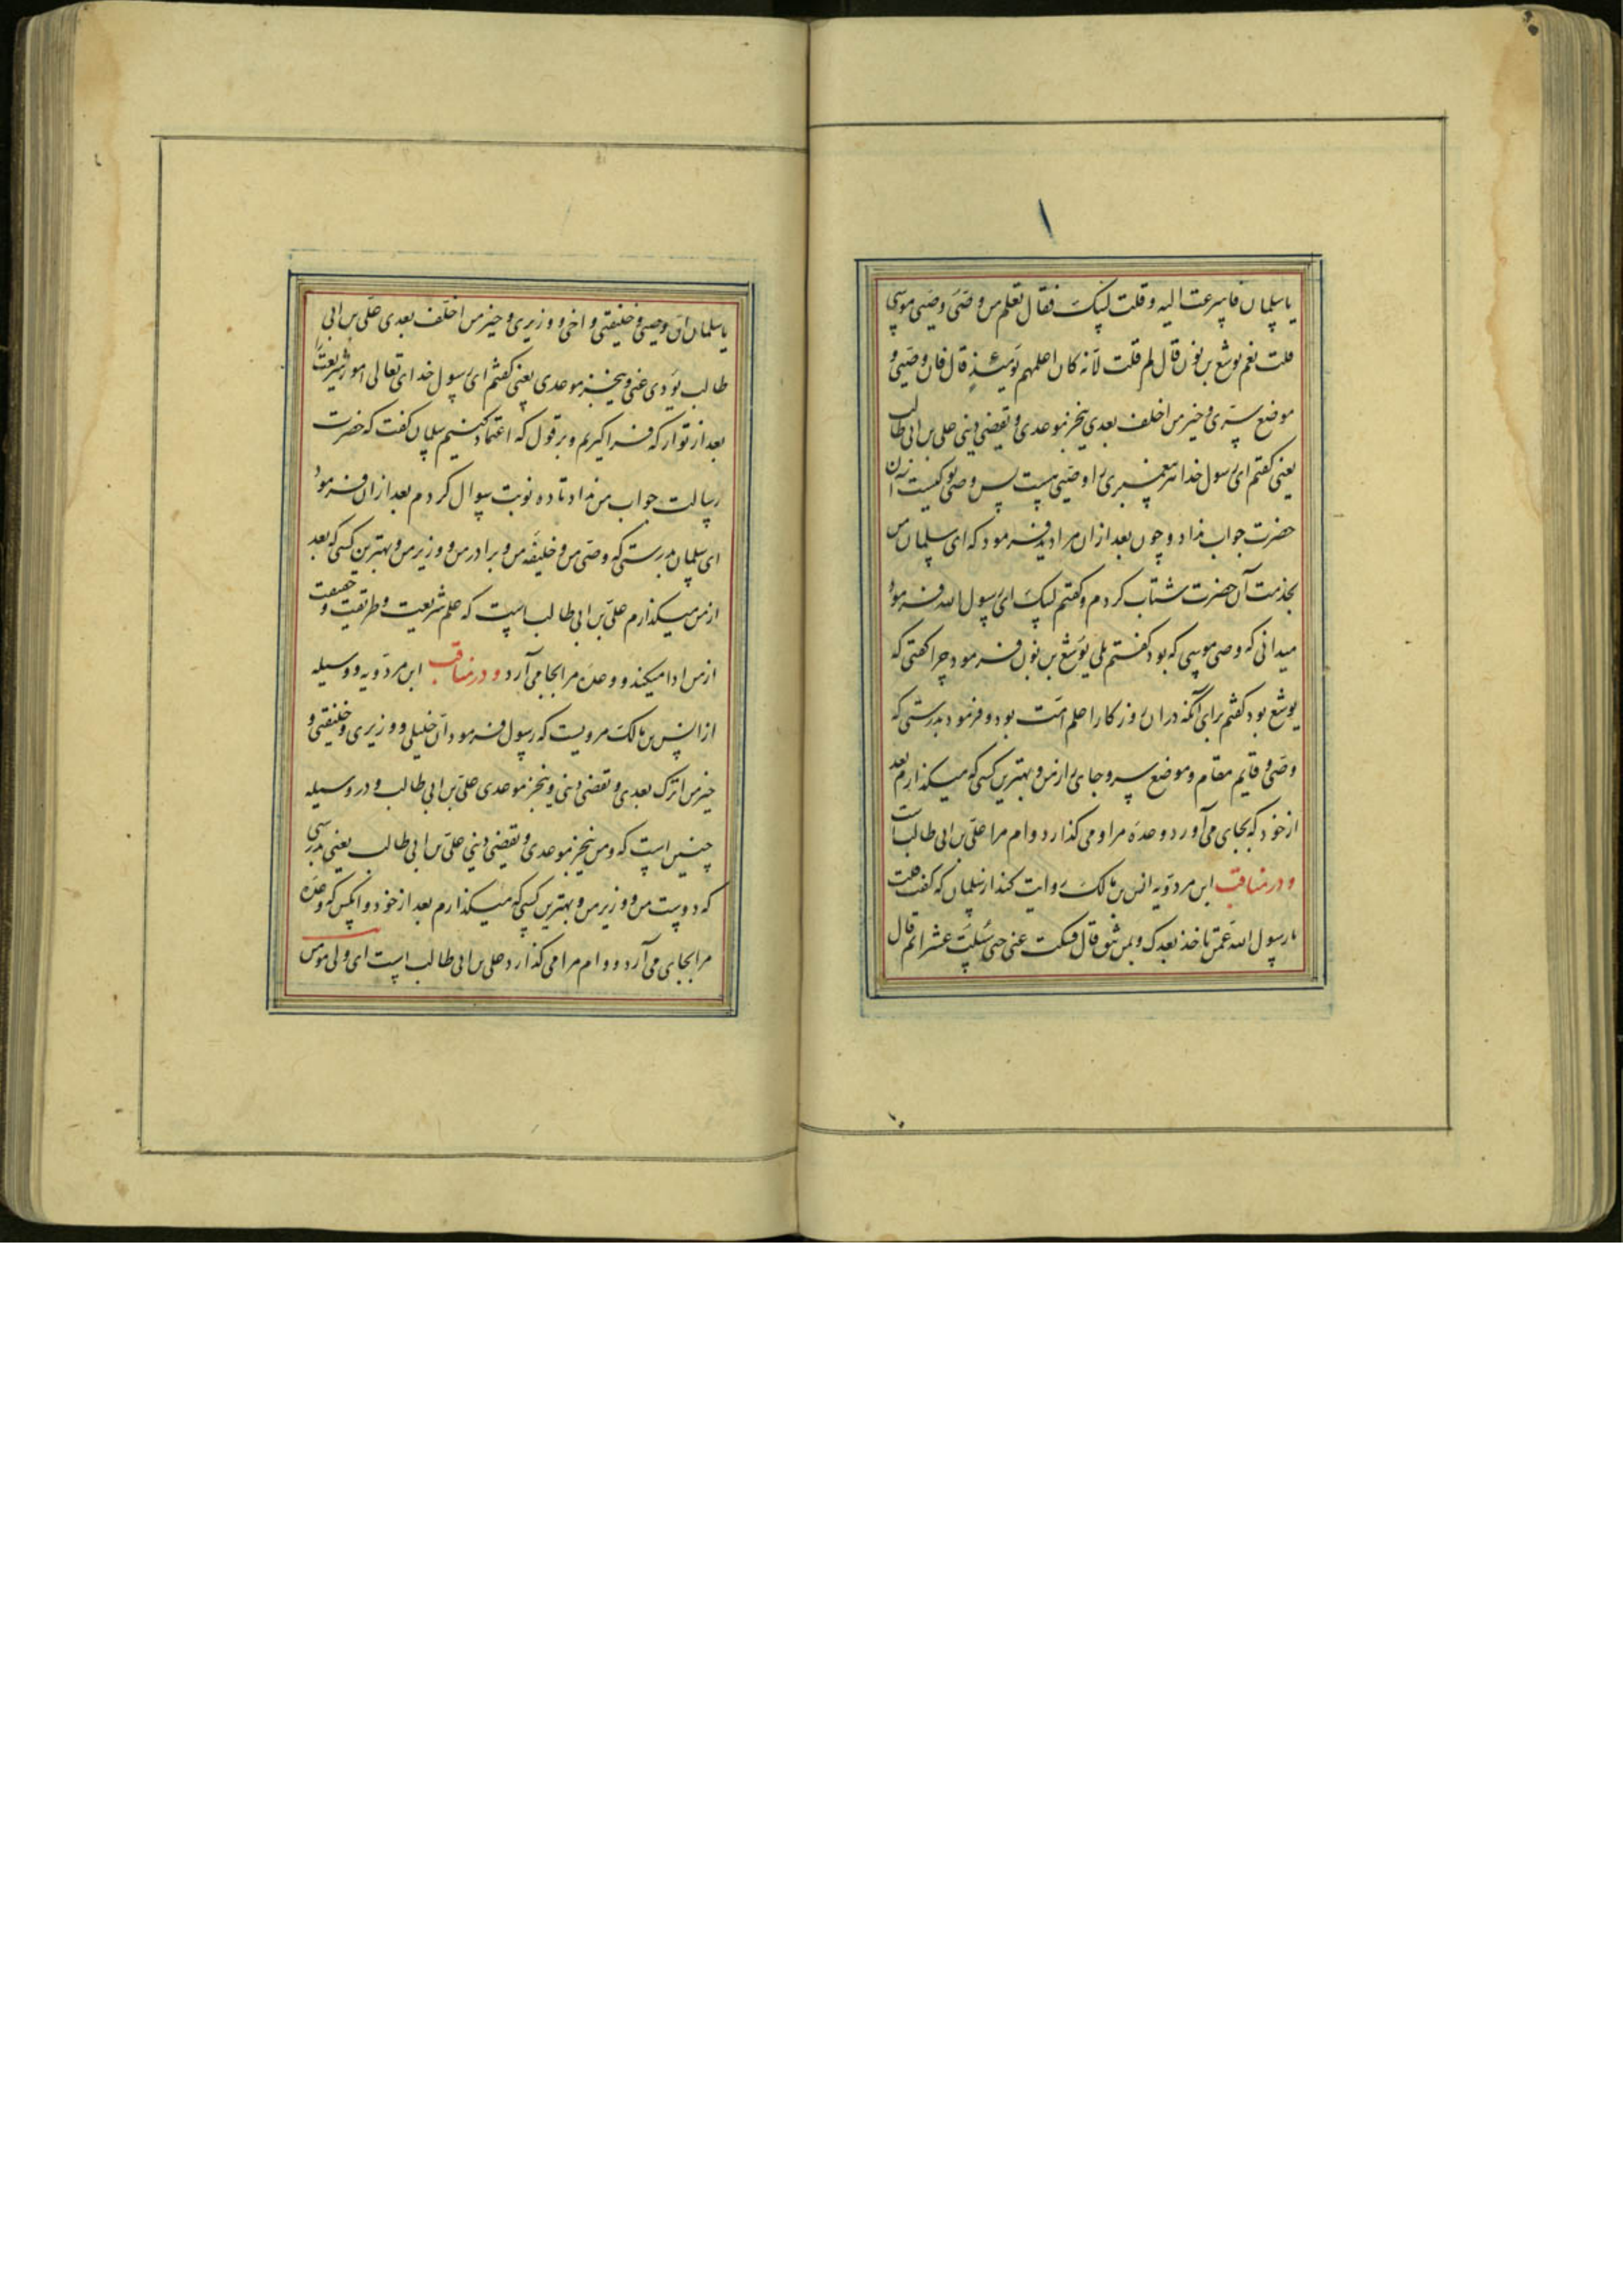 یا سلمان فاسرعت الیه و قلت لبیک فقال تعلم من وصی وصی موسی
قلت نعم یوشع بن نون قال لم قلت لانه کان اعلمهم یومئذ قال فان وصیی و
موضع سری و خیر من اخلف بعدی ینجز موعدی و یقضی دینی علی بن ابی طالب
یعنی کفتم ای رسول خدا هر پیغمبری را وصیی هست پس وصی تو کیست آن
حضرت جواب نداد و چون بعد از ان مرا دید فرمود که ای سلمان من
بخدمت آن حضرت شتاب کردم و کفتم لبیک ای رسول الله فرمود
میدانی که وصی موسی که بود کفتم بلی یوشع بن نون فرمود چرا کفتی که
یوشع بود کفتم برای آنکه در ان روزکار اعلم امت بود و فرمود بدرستی که
وصی و قایم مقام و موضع سر و جای راز من و بهترین کسی که میکذارم بعد
از خود که بجای می آورد وعده مرا و می کذارد وام مرا علی بن ابی طالب است
و در مناقب ابن مردویه انس بن مالک روایت کند از سلمان که کفت قلت
یا رسول الله عمن ناخذ بعدک و بمن نثق قال فسکت عنی حتی سئلت عشرا ثم قال
یا سلمان ان وصیی و خلیفتی و اخی و وزیری و خیر من اخلف بعدی علی بن ابی
طالب یؤدی عنی و ینجز موعدی یعنی کفتم ای رسول خدای تعالی امور شریعت
بعد از تو از که فرا کیریم و بر قول که اعتماد کنیم سلمان کفت که حضرت
رسالت جواب من نداد تا ده نوبت سوال کردم بعد از ان فرمود
ای سلمان بدرستی که وصی من و خلیفه من و برادر من و وزیر من و بهترین کسی که بعد
از من میکذارم علی بن ابی طالب است که علم شریعت و طریقت و حقیقت
از من ادا میکند و وعده مرا بجا می آرد و در مناقب ابن مردویه و وسیله
از انس بن مالک مرویست که رسول فرمود ان خلیلی و وزیری و خلیفتی و
خیر من اترک بعدی و تقضی دینی و ینجز موعدی علی بن ابی طالب و در وسیله
چنین است که و من ینجز موعدی و یقضی دینی علی بن ابی طالب یعنی بدرستی
که دوست من و وزیر من و بهترین کسی که میکذارم بعد از خود و آنکس که وعده
مرا بجای می آرد و وام مرا می کذارد علی بن ابی طالب است ای ولی مومن